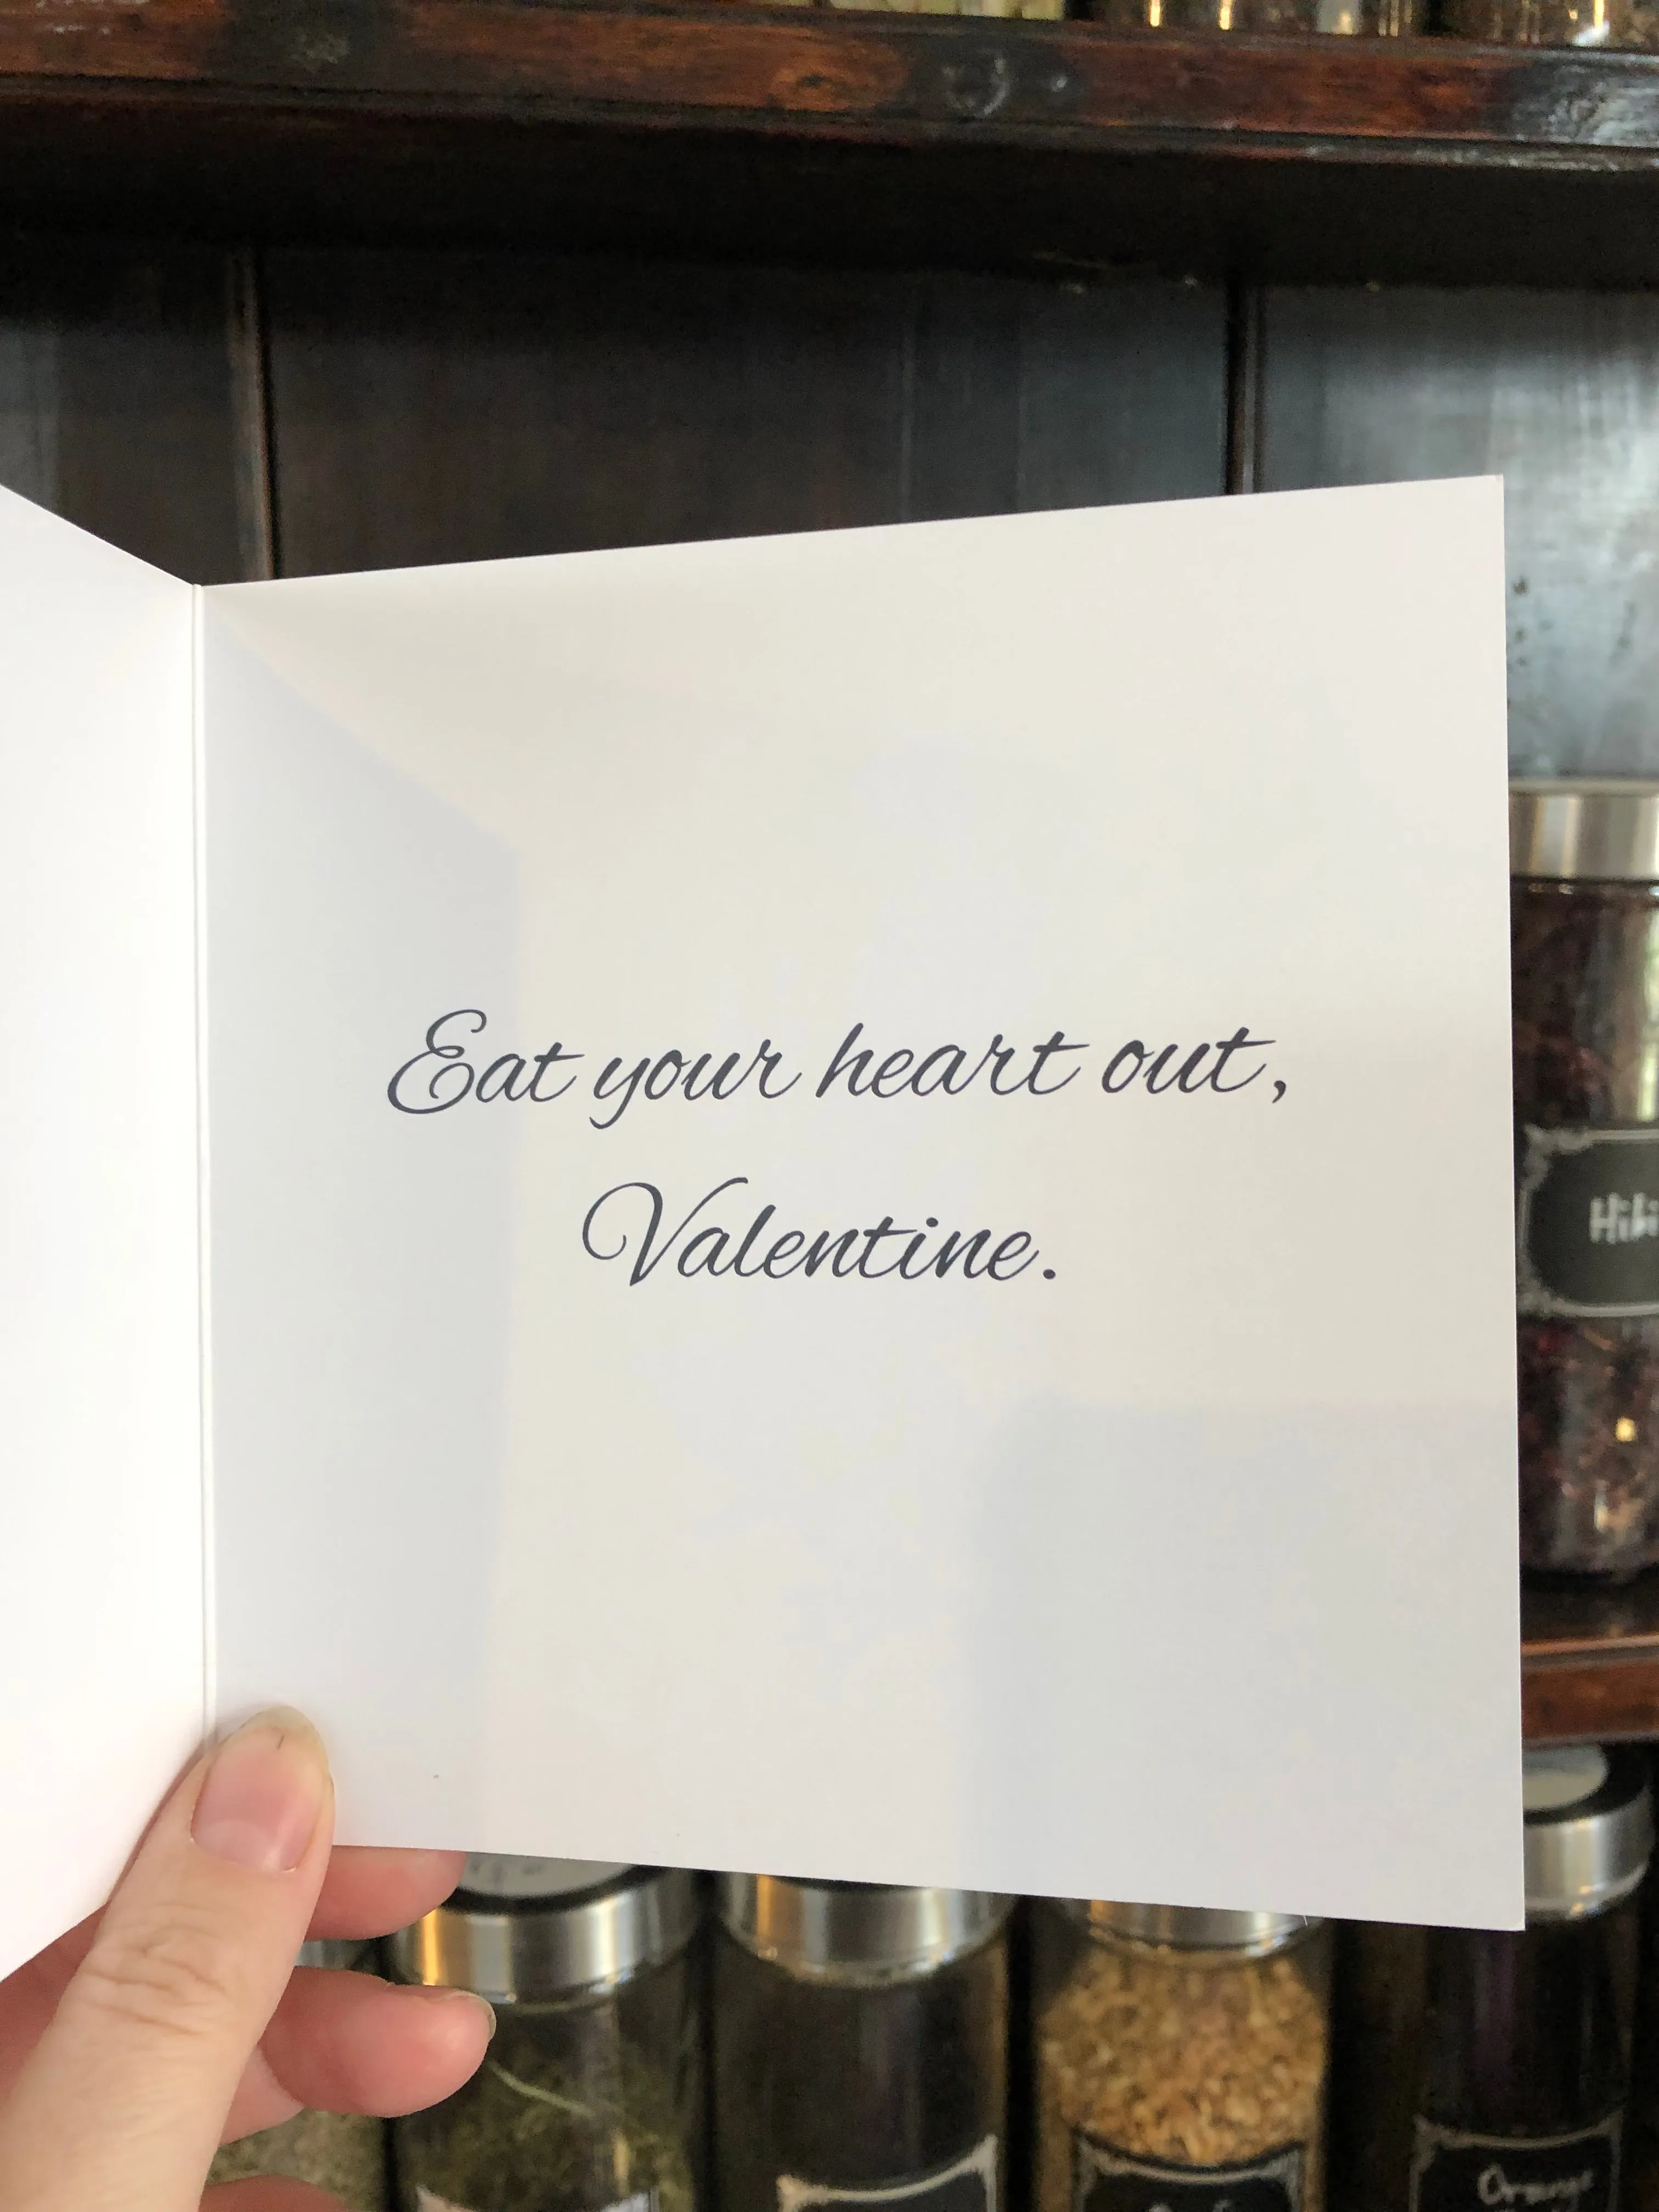 Eat your heart out,
Valentine.
Orange